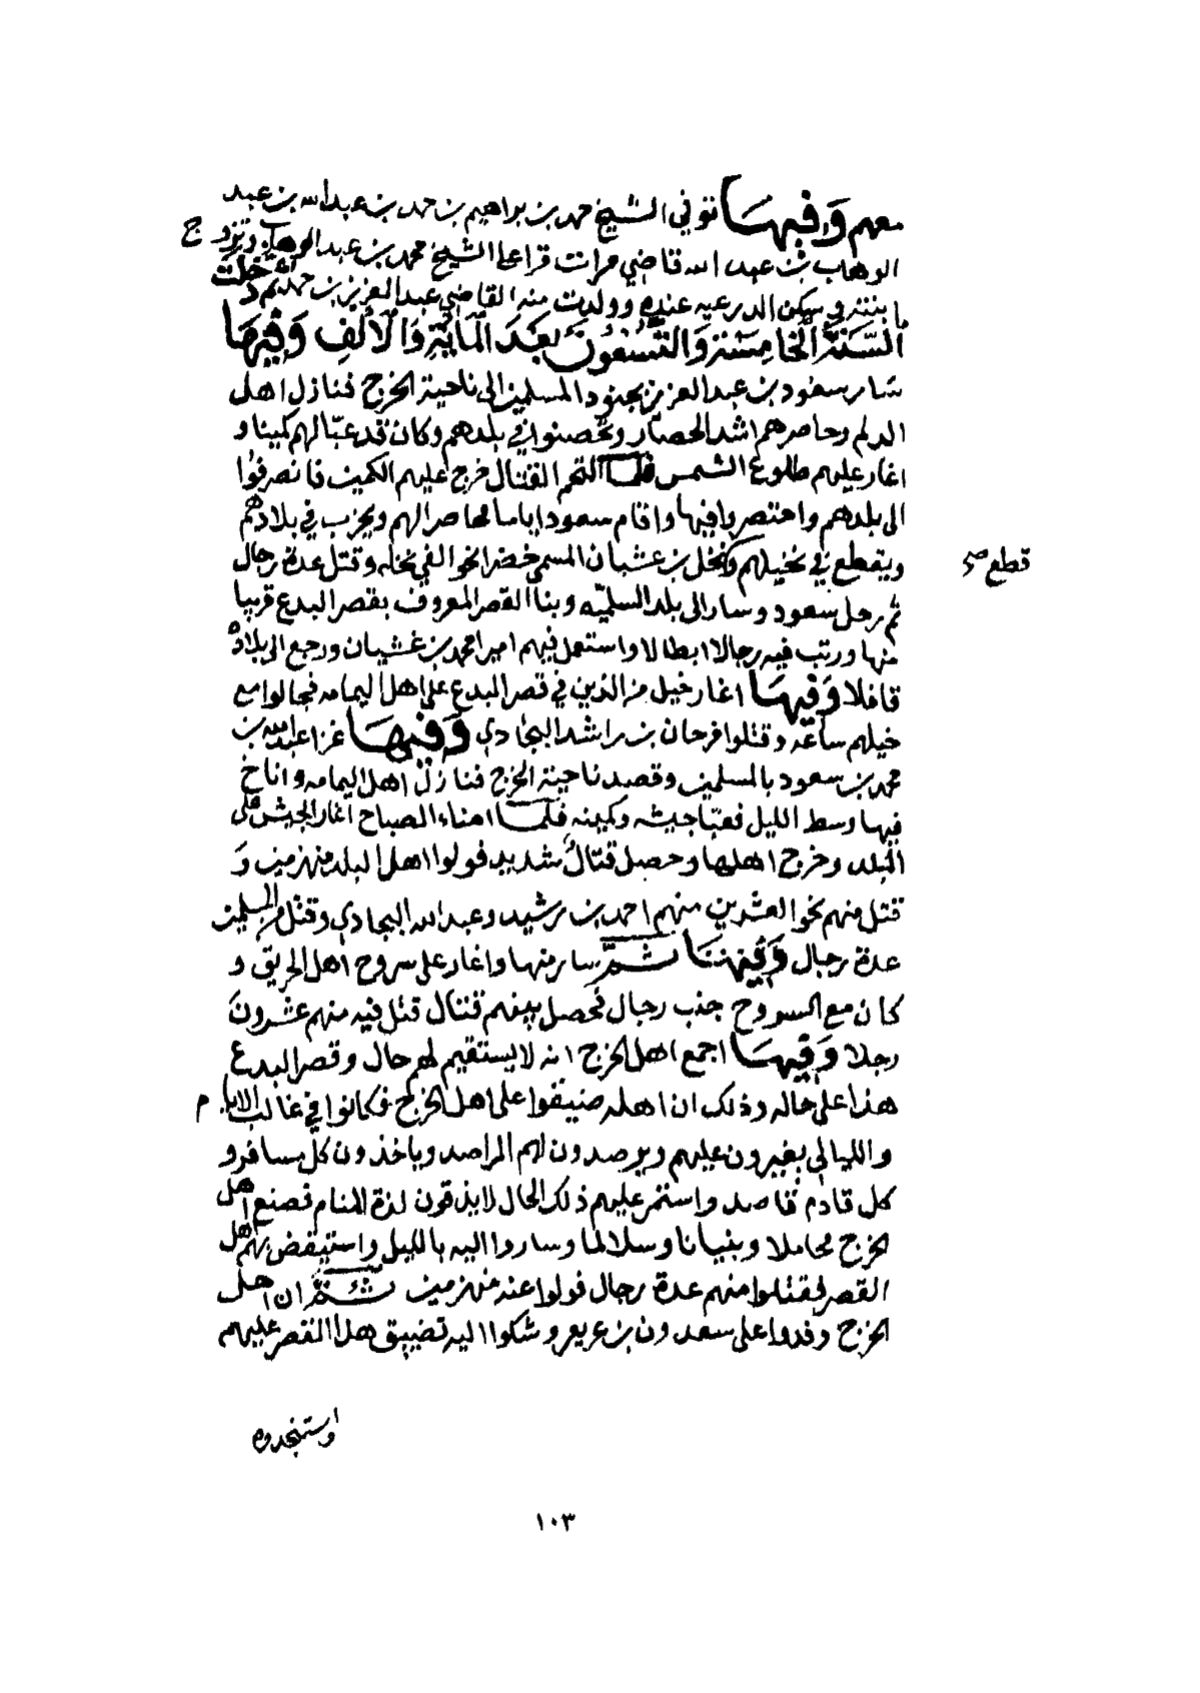 معهم وَفِيهَا توفي الشيخ حمد بن براهيم بن حمد بن عبدالله بن عبد
الوهاب بن عبد الله قاضي مرات قرا على الشيخ محمد بن عبد الوهاب وتزوج
بابنته وسكن الدرعيه عنده وولدت منه القاضي عبد العزيز بن حمد ثم دخلت
السَّنَةُ الخَامِسَة وَالتَّسْعُونَ بَعْدَ المَايَةِ وَالأَلْفِ وَفِيهَا
سار سعود بن عبد العزيز بجنود المسلمين الى ناحية الخرج فنازل اهل
الدلم وحاصرهم اشد الحصار وتحصنوا في بلدهم وكان قد عبّا لهم كمينا و
اغار عليهم طلوع الشمس فلما التحم القتال خرج عليهم الكمين فانصرفوا
الى بلدهم واحتصروا فيها واقام سعود اياما محاصرا لهم ويخرب في بلادهم
ويقطع في نخيلهم ونخل بن عشبان المسمى خضرا نحو الفي نخله وقتل عدة رجال
قطع صح
ثم رحل سعود وسار الى بلد السلميّه وبنا القصر المعروف بقصر البدع قريبا
منها ورتب فيه رجالا ابطالا واستعمل فيهم اميرا محمد بن غشيان ورجع الى بلاده
قافلا وَفِيهَا اغار خيل من الذين في قصر البدع على اهل اليمامه فجالوا مع
خيلهم ساعه وقتلوا فرحان بن راشد البجادي وَفِيهَا غزا عبدالله بن
محمد بن سعود بالمسلمين وقصد ناحية الخرج فنازل اهل اليمامه واناخ
فيها وسط الليل فعبّا جيشه وكمينه فلما اضاء الصباح اغار الجيش على
البلد وخرج اهلها وحصل قتال شديد فولوا اهل البلد منهزمين و
قتل منهم نحو العشرين منهم احمد بن رشيد وعبد الله البجادي وقتل من المسلمين
عدة رجال وَفِيهَا ثُمَّ سار منها واغار على سروح اهل الحريق و
كان مع السروح جذب رجال فحصل بينهم قتال قتل فيه منهم عشرون
رجلا وَفِيهَا اجمع اهل الخرج انه لا يستقيم لهم حال وقصر البدع
هذا على حاله وذلك ان اهله ضيقوا على اهل الخرج فكانوا في غالب الايام
والليالي يغيرون عليهم ويرصدون لهم المراصد وياخذون كل مسافر و
كل قادم قاصد واستمر عليهم ذلك الحال لا يذقون لذة المنام فصنع اهل
الخرج محاملا وبنيانا وسلالما وساروا اليه بالليل واستيقض بهم اهل
القصر فقتلوا منهم عدة رجال فولوا عنه منهزمين ثُمَّ ان اهل
الخرج وفدوا على سعدون بن عريعر وشكوا اليه تضييق هذا القصر عليهم
واستنجدوه
١٠٣